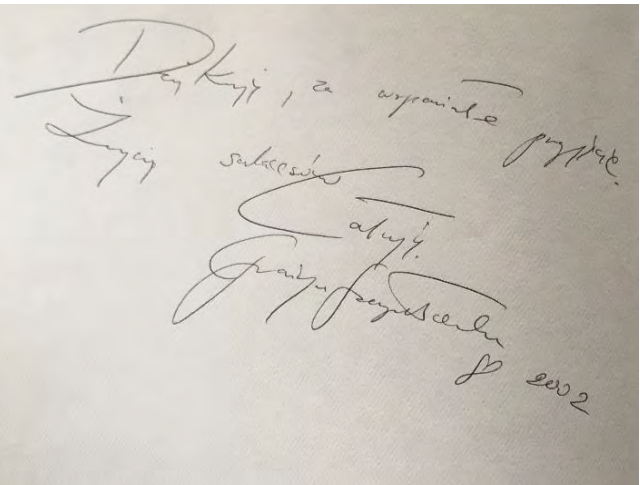 Dziękuję, za wspaniałe przyjęcie.
Życzę sukcesów
Całuję.
Grażyna Szapołowska
2002